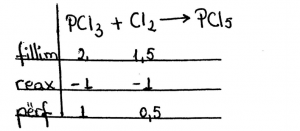 PCl₃ + Cl₂ ⟶ PCl₅
fillim 2, 1,5
reax -1 -1
përf 1 0,5